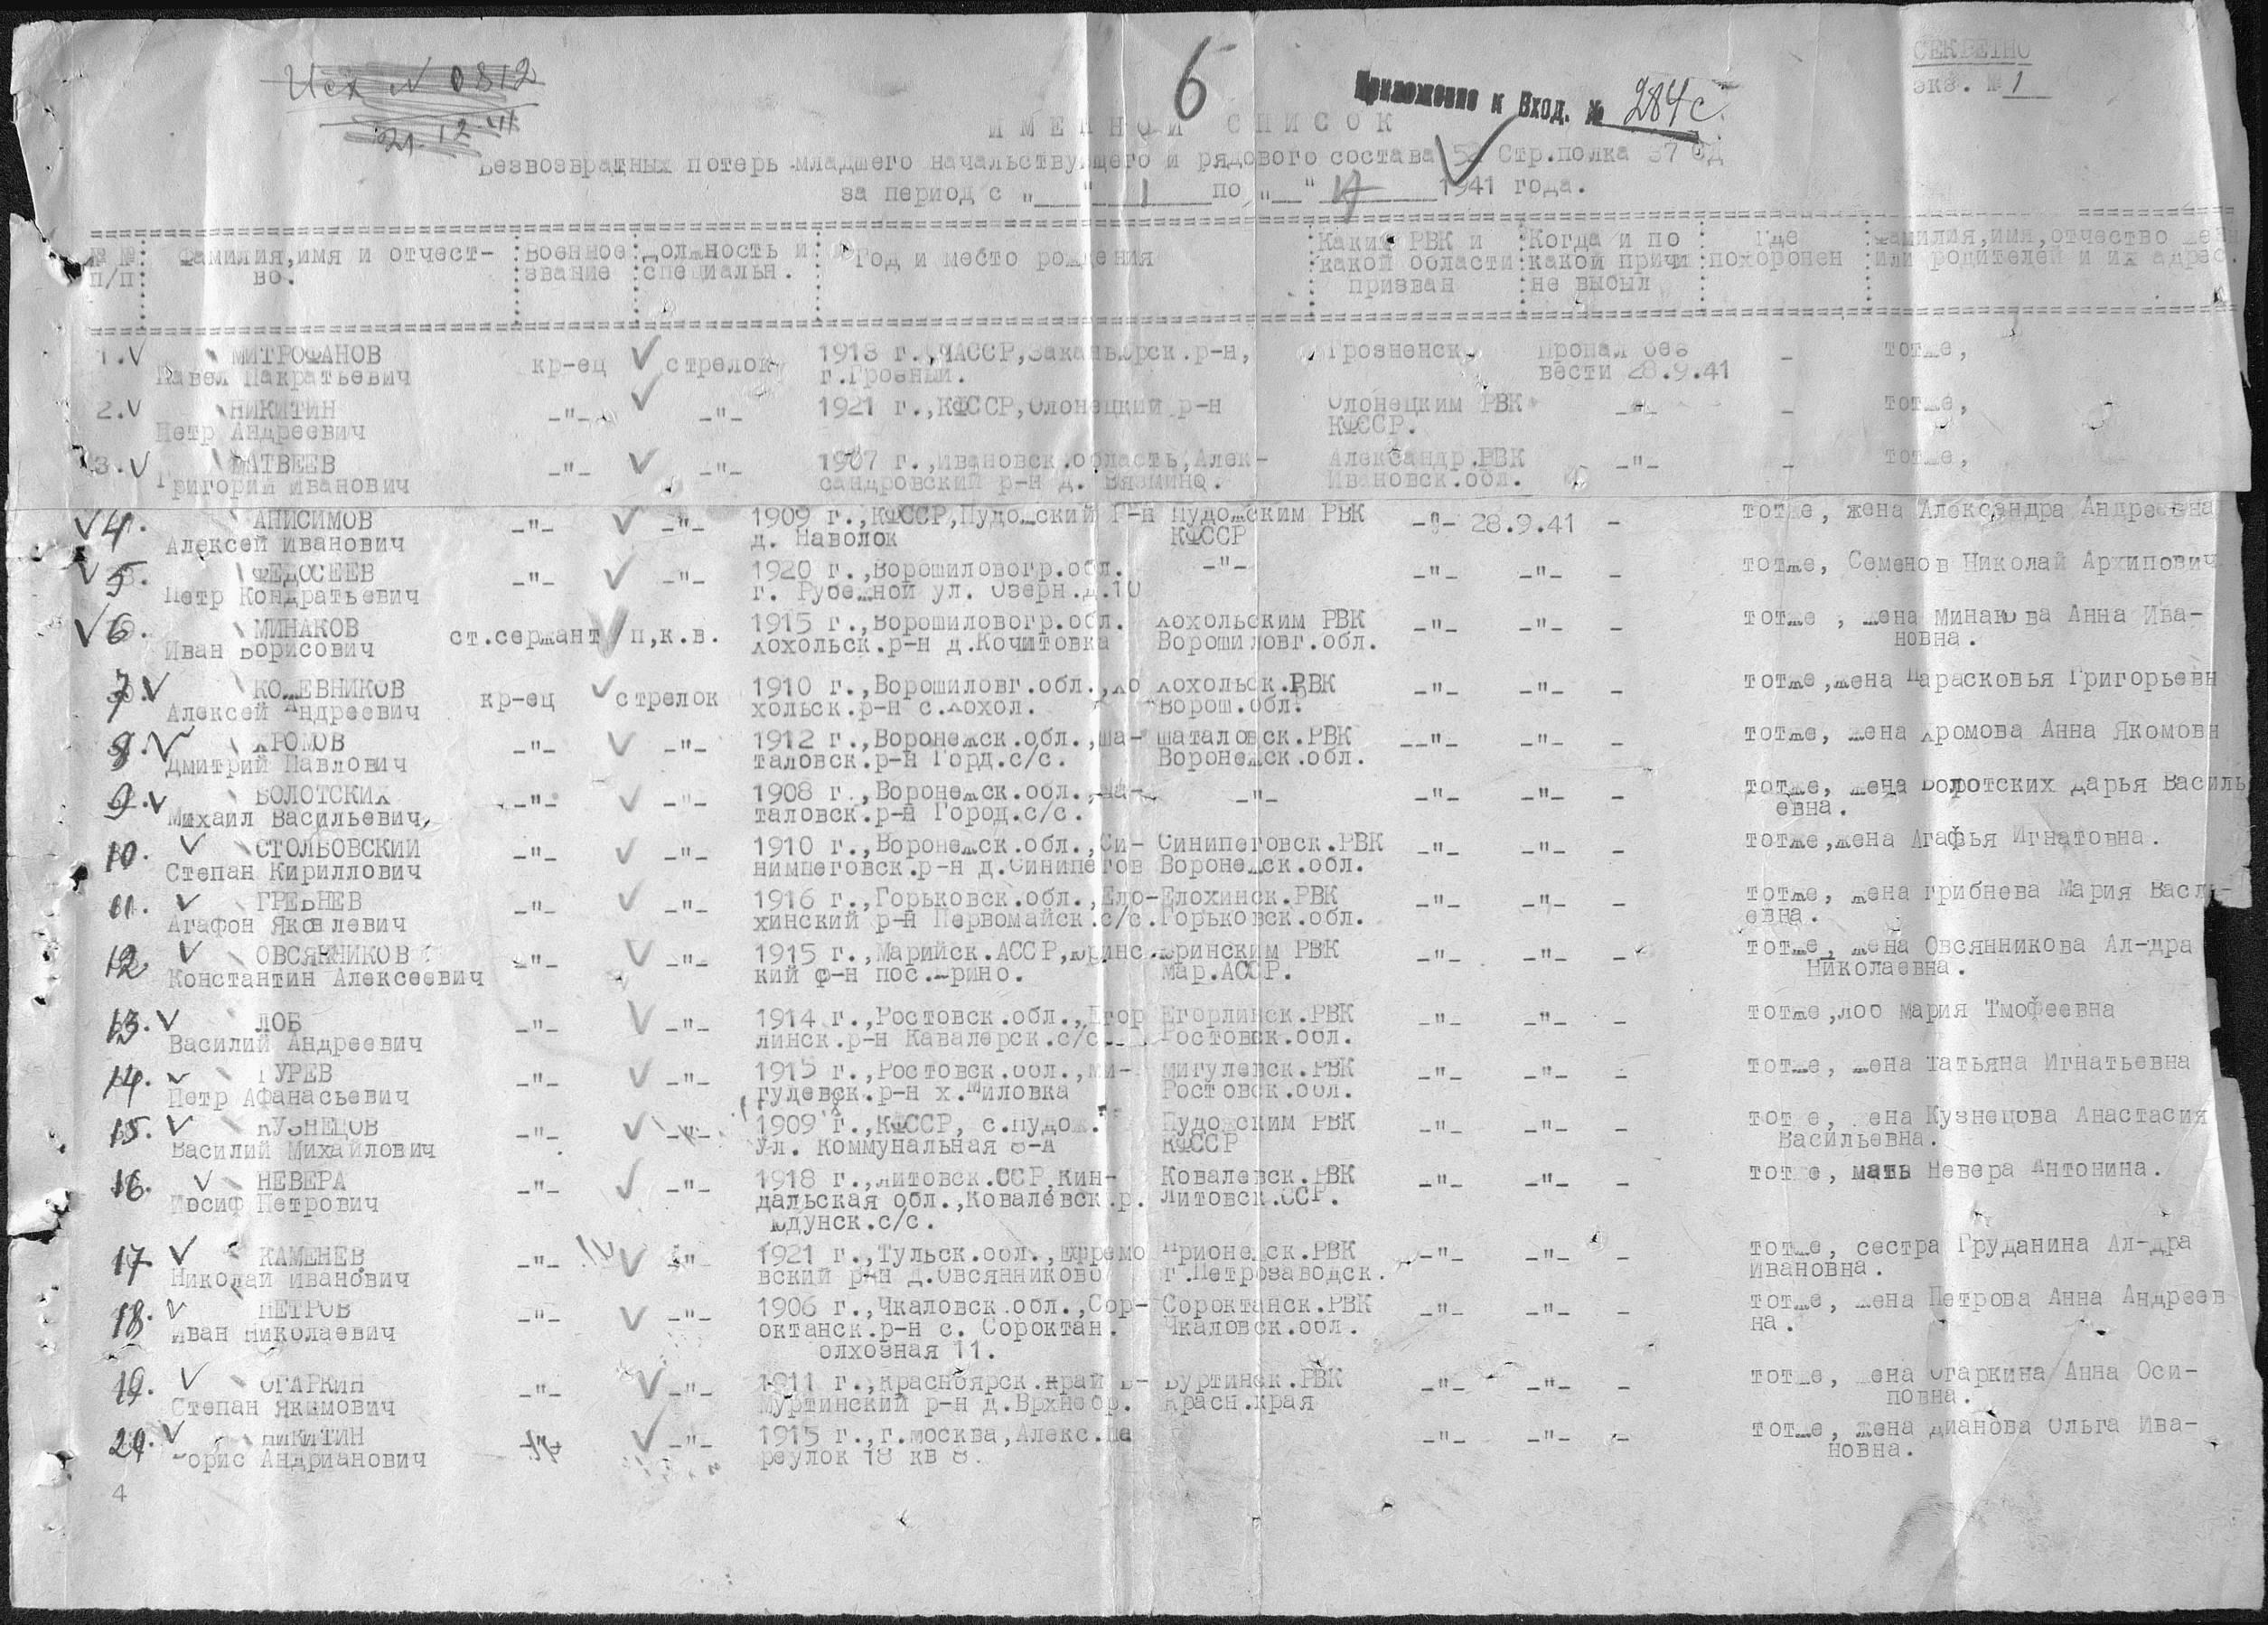 СЕКРЕТНО
экз. № 1
Исх N 0812
21.12.41
6
Приложение к Вход. № 284с
ИМЕННОЙ СПИСОК
Безвозвратных потерь младшего начальствующего и рядового состава 52 Стр.полка 37 СД
за период с "__" 1 по "__" 1941 года.
№ № п/п Фамилия,имя и отчест- Военное должность и Год и место рождения Каким РВК и Когда и по Где Фамилия,имя,отчество жены
во. звание специальн. какой области какой причи похоронен или родителей и их адрес.
призван не выбыл
1. МИТРОФАНОВ кр-ец стрелок 1913 г.,ЧАССР, г.Грозный. Грозненск. Пропал без вести 28.9.41 - тотже,
Павел Пакратьевич
2. НИКИТИН -"- -"- 1921 г.,КФССР,Олонецкий р-н Олонецким РВК -"- - тотже,
Петр Андреевич КФССР.
3. МАТВЕЕВ -"- -"- 1907 г.,Ивановск.область,Алек- Александр.РВК -"- - тотже,
Григорий Иванович сандровский р-н д. Вязмино. Ивановск.обл.
4. АНИСИМОВ -"- -"- 1909 г.,КФССР,Пудожский Р-н Пудожским РВК -"- 28.9.41 - тотже, жена Александра Андреевна
Алексей Иванович д. Наволок КФССР
5. ФЕДОСЕЕВ -"- -"- 1920 г.,Ворошиловогр.обл. -"- -"- -"- - тотже, Семенов Николай Архипович
Петр Кондратьевич г. Рубежной ул. Озерн.д.10
6. МИНАКОВ ст.сержант п,к.в. 1915 г.,Ворошиловогр.обл. Хохольским РВК -"- -"- - тотже , жена Минакова Анна Ива-
Иван Борисович Хохольск.р-н д.Кочитовка Ворошиловг.обл. новна.
7. КОЖЕВНИКОВ кр-ец стрелок 1910 г.,Ворошиловг.обл.,хо Хохольск.РВК -"- -"- - тотже,жена Парасковья Григорьевн
Алексей Андреевич хольск.р-н с.Хохол. Ворош.обл.
8. ХРОМОВ -"- -"- 1912 г.,Воронежск.обл.,ша- Шаталовск.РВК -"- -"- - тотже, жена Хромова Анна Якомовн
Дмитрий Павлович таловск.р-н Горд.с/с. Воронежск.обл.
9. БОЛОТСКИХ -"- -"- 1908 г.,Воронежск.обл.,ша- -"- -"- -"- - тотже, жена Болотских Дарья Василь
Михаил Васильевич таловск.р-н Город.с/с. евна.
10. СТОЛБОВСКИЙ -"- -"- 1910 г.,Воронежск.обл.,Си- Синипеговск.РВК -"- -"- - тотже,жена Агафья Игнатовна.
Степан Кириллович нимпеговск.р-н д.Синипегов Воронежск.обл.
11. ГРЕБНЕВ -"- -"- 1916 г.,Горьковск.обл.,Ело- Елохинск.РВК -"- -"- - тотже, жена Грибнева Мария Васи-
Агафон Яковлевич хинский р-н Первомайск.с/с. Горьковск.обл. евна.
12. ОВСЯННИКОВ -"- -"- 1915 г.,Марийск.АССР,юринс. Юринским РВК -"- -"- - тотже, жена Овсянникова Ал-дра
Константин Алексеевич кий р-н пос.Юрино. Мар.АССР. Николаевна.
13. ЛОБ -"- -"- 1914 г.,Ростовск.обл.,Егор Егорлинск.РВК -"- -"- - тотже,Лоб Мария Тмофеевна
Василий Андреевич линск.р-н Кавалерск.с/с. Ростовск.обл.
14. ГУРЕВ -"- -"- 1915 г.,Ростовск.обл.,ми- Мигулевск.РВК -"- -"- - тотже, жена Татьяна Игнатьевна
Петр Афанасьевич гудевск.р-н х.Миловка Ростовск.обл.
15. КУЗНЕЦОВ -"- -"- 1909 г.,КФССР, с.пудож. Пудожским РВК -"- -"- - тотже, жена Кузнецова Анастасия
Василий Михайлович Ул. Коммунальная 8-А КФССР Васильевна.
16. НЕВЕРА -"- -"- 1918 г.,Литовск.ССР,Кин- Ковалевск.РВК -"- -"- - тотже, мать Невера Антонина.
Иосиф Петрович дальская обл.,Ковалевск.р. Литовск.ССР.
Юдунск.с/с.
17. КАМЕНЕВ -"- -"- 1921 г.,Тульск.обл.,Ефремо Прионежск.РВК -"- -"- - тотже, сестра Груданина Ал-дра
Николай Иванович вский р-н д.Овсянниково г.Петрозаводск. Ивановна.
18. ПЕТРОВ -"- -"- 1906 г.,Чкаловск.обл.,Сор- Сороктанск.РВК -"- -"- - тотже, жена Петрова Анна Андреев
Иван Николаевич октанск.р-н с. Сороктан. Чкаловск.обл. на.
олхозная 11.
19. ОГАРКИН -"- -"- 1911 г.,Красноярск.край Б- Буртинск.РВК -"- -"- - тотже, жена Огаркина Анна Оси-
Степан Якимович Муртинский р-н д. Красн.края повна.
20. НИКИТИН -"- -"- 1915 г.,г.Москва,Алекс.пе -"- -"- - тотже, жена Дианова Ольга Ива-
Борис Андрианович реулок 18 кв 8. новна.
4